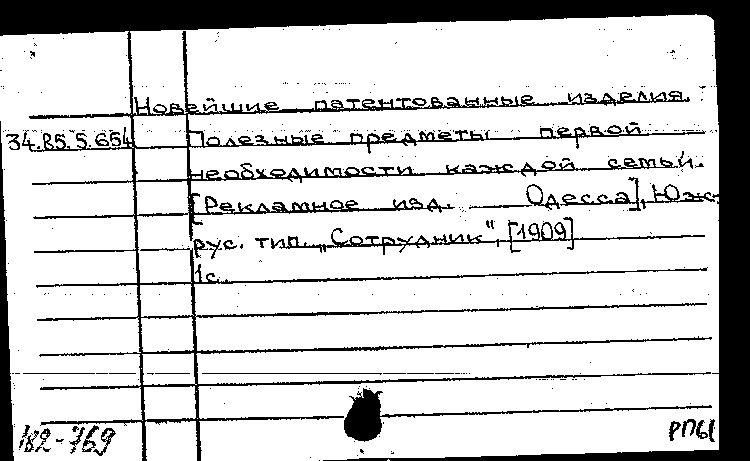 Новейшие патентованные изделия.
34.85.5.654 Полезные предметы первой
необходимости каждой семьи.
[Рекламное изд. Одесса], Южс-
рус. тип. „Сотрудник", [1909]
1с.
182-769
РП61